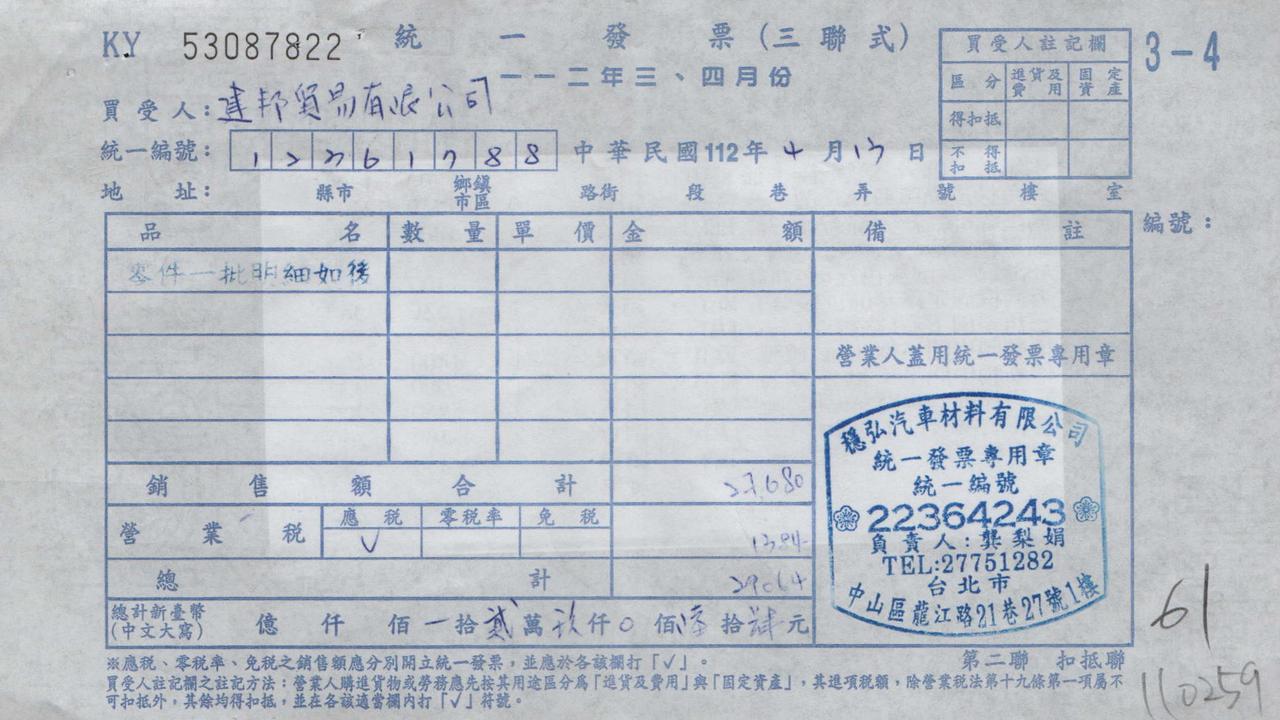 KY 53087822 統一發票(三聯式)
一一二年三、四月份
3-4
買受人註記欄
區分 進貨及費用 固定資產
得扣抵
不得扣抵
買受人:建邦貿易有限公司
統一編號:
中華民國112年4月13日
地址: 縣市 鄉鎮市區 路街 段 巷 弄 號 樓 室
品名 數量 單價 金額 備註 編號:
零件一批明細如後
營業人蓋用統一發票專用章
銷售額合計 27,680
營業稅 應稅 零稅率 免稅
V 1384
總計 29064
總計新臺幣(中文大寫) 億 仟 佰 一拾貳萬玖仟0佰陸拾肆元
穩弘汽車材料有限公司
統一發票專用章
統一編號
22364243
負責人:龔梨娟
TEL:27751282
台北市
中山區龍江路21巷27號1樓
※應稅、零稅率、免稅之銷售額應分別開立統一發票,並應於各該欄打「✓」。
第二聯 扣抵聯
買受人註記欄之註記方法:營業人購進貨物或勞務應先按其用途區分為「進貨及費用」與「固定資產」,其進項稅額,除營業稅法第十九條第一項屬不
可扣抵外,其餘均得扣抵,並在各該適當欄內打「✓」符號。
61
110259